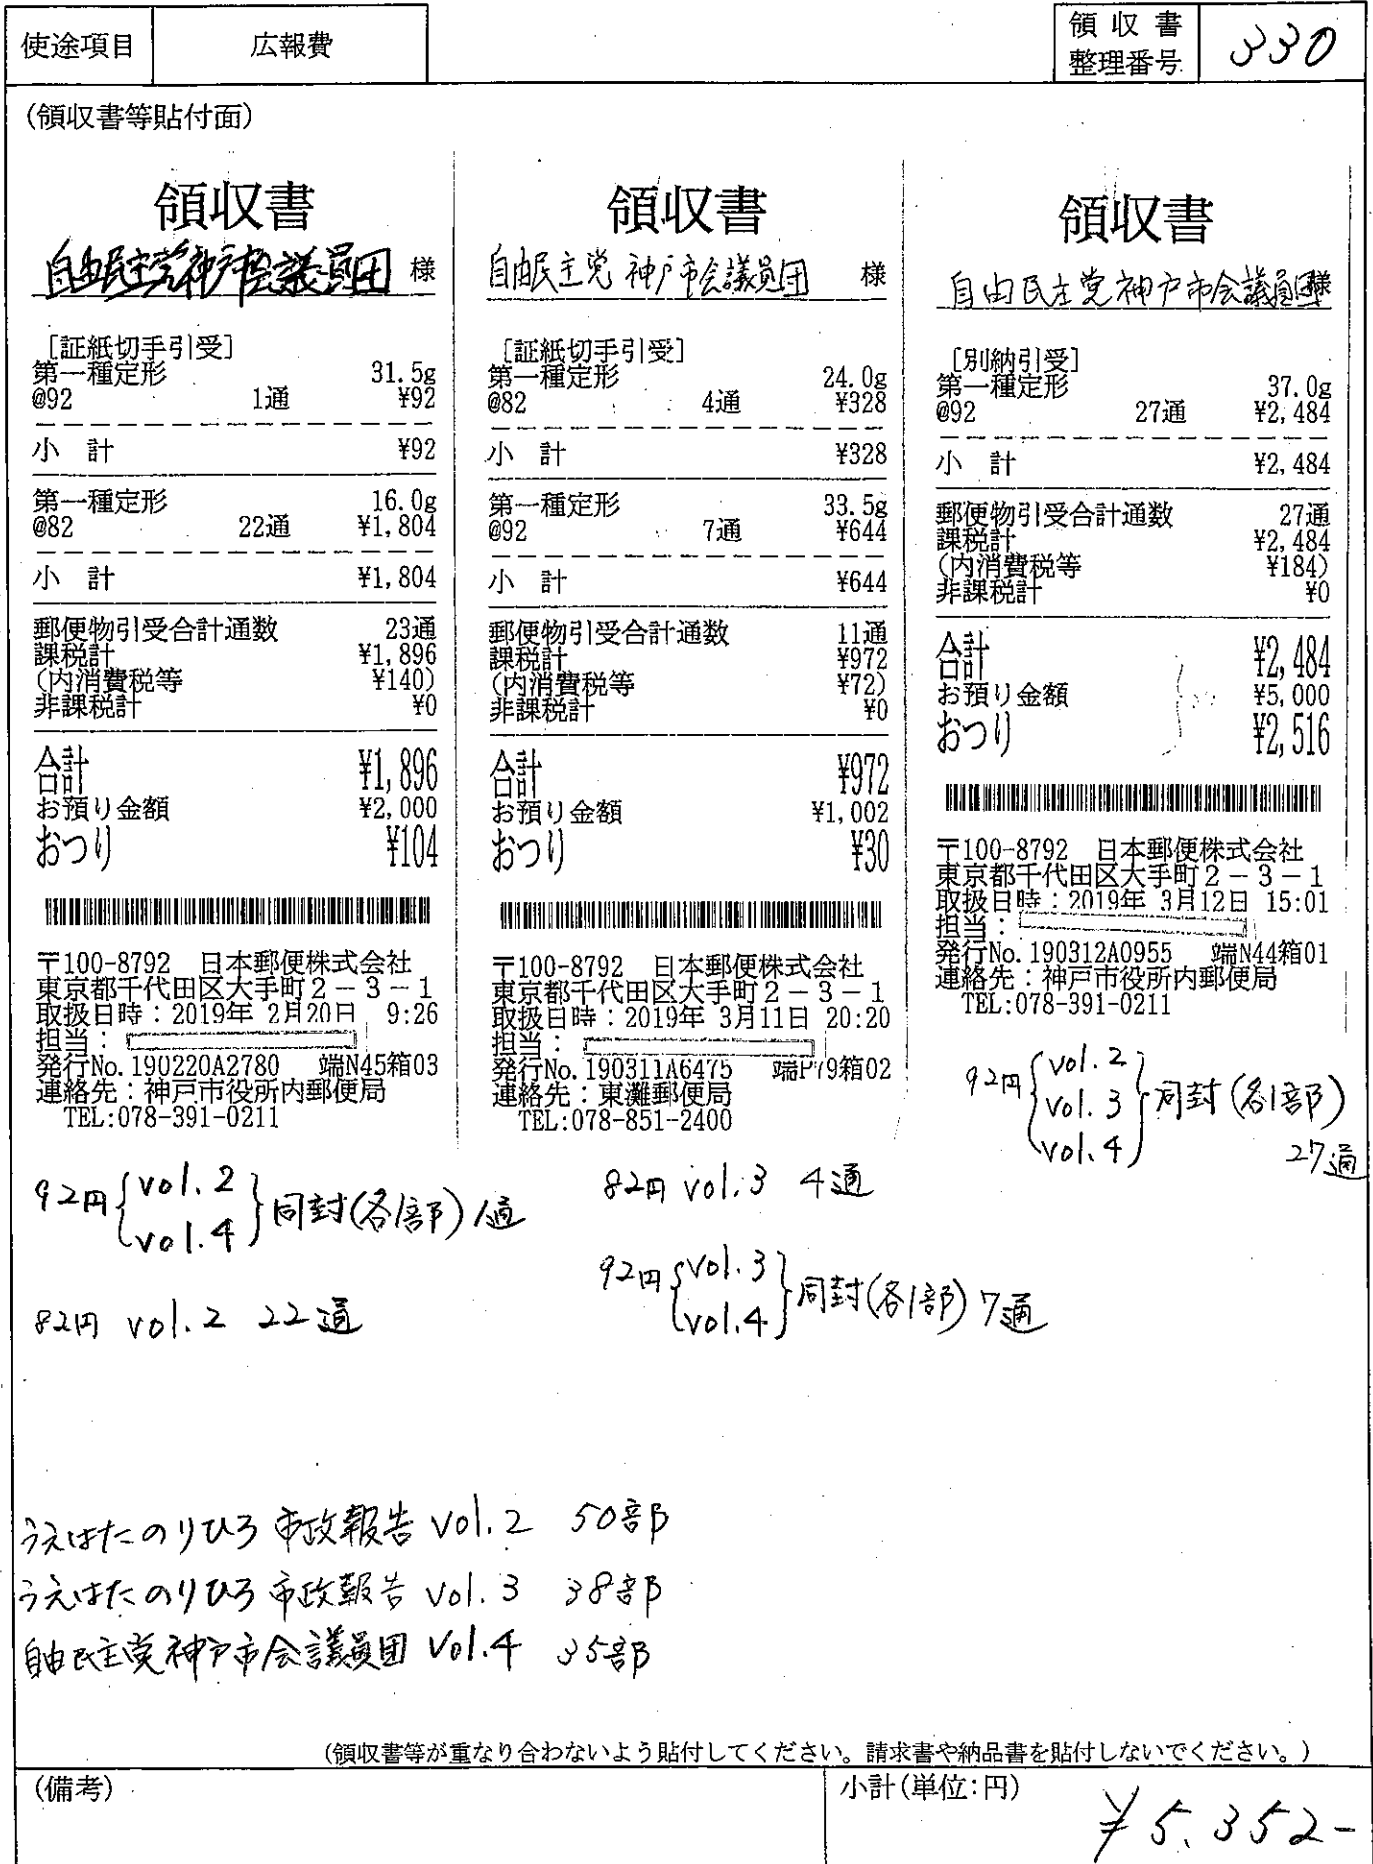 使途項目 広報費 領収書整理番号 330
(領収書等貼付面)
領収書
自由民主党神戸市会議員団 様
[証紙切手引受]
第一種定形 31.5g
@92 1通 ¥92
小 計 ¥92
第一種定形 16.0g
@82 22通 ¥1,804
小 計 ¥1,804
郵便物引受合計通数 23通
課税計 ¥1,896
(内消費税等 ¥140)
非課税計 ¥0
合計 ¥1,896
お預り金額 ¥2,000
おつり ¥104
〒100-8792 日本郵便株式会社
東京都千代田区大手町2-3-1
取扱日時:2019年 2月20日 9:26
担当:
発行No.190220A2780 端N45箱03
連絡先:神戸市役所内郵便局
TEL:078-391-0211
92円{vol.2 vol.4}同封(各1部)1通
82円 vol.2 22通
領収書
自由民主党 神戸市会議員団 様
[証紙切手引受]
第一種定形 24.0g
@82 4通 ¥328
小 計 ¥328
第一種定形 33.5g
@92 7通 ¥644
小 計 ¥644
郵便物引受合計通数 11通
課税計 ¥972
(内消費税等 ¥72)
非課税計 ¥0
合計 ¥972
お預り金額 ¥1,002
おつり ¥30
〒100-8792 日本郵便株式会社
東京都千代田区大手町2-3-1
取扱日時:2019年 3月11日 20:20
担当:
発行No.190311A6475 端P79箱02
連絡先:東灘郵便局
TEL:078-851-2400
82円 vol.3 4通
92円{vol.3 vol.4}同封(各1部)7通
領収書
自由民主党神戸市会議員団様
[別納引受]
第一種定形 37.0g
@92 27通 ¥2,484
小 計 ¥2,484
郵便物引受合計通数 27通
課税計 ¥2,484
(内消費税等 ¥184)
非課税計 ¥0
合計 ¥2,484
お預り金額 ¥5,000
おつり ¥2,516
〒100-8792 日本郵便株式会社
東京都千代田区大手町2-3-1
取扱日時:2019年 3月12日 15:01
担当:
発行No.190312A0955 端N44箱01
連絡先:神戸市役所内郵便局
TEL:078-391-0211
92円{vol.2 vol.3 vol.4}同封(各1部)
27通
うえはたのりひろ 市政報告 vol.2 50部
うえはたのりひろ 市政報告 vol.3 38部
自由民主党神戸市会議員団 vol.4 35部
(領収書等が重なり合わないよう貼付してください。請求書や納品書を貼付しないでください。)
(備考) 小計(単位:円)
¥5,352-